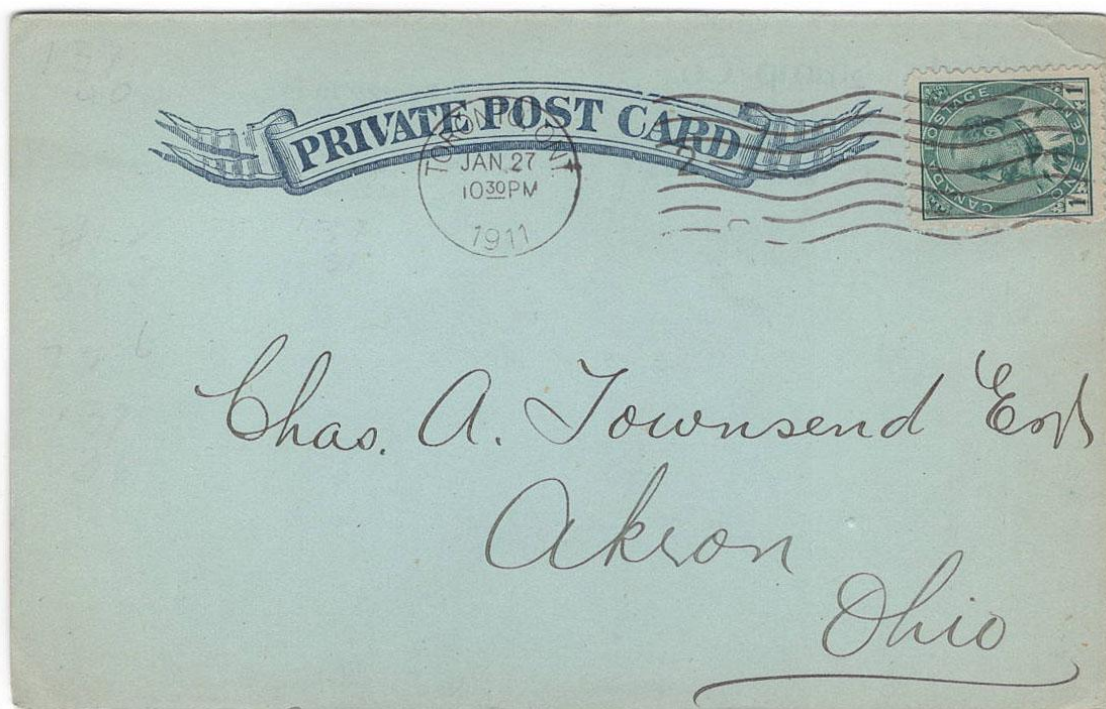 PRIVATE POST CARD
TORONTO, ONT.
JAN. 27
10 30 PM
1911
2
CANADA POSTAGE
ONE CENT
1 1
Chas. A. Townsend Esq
Akron
Ohio